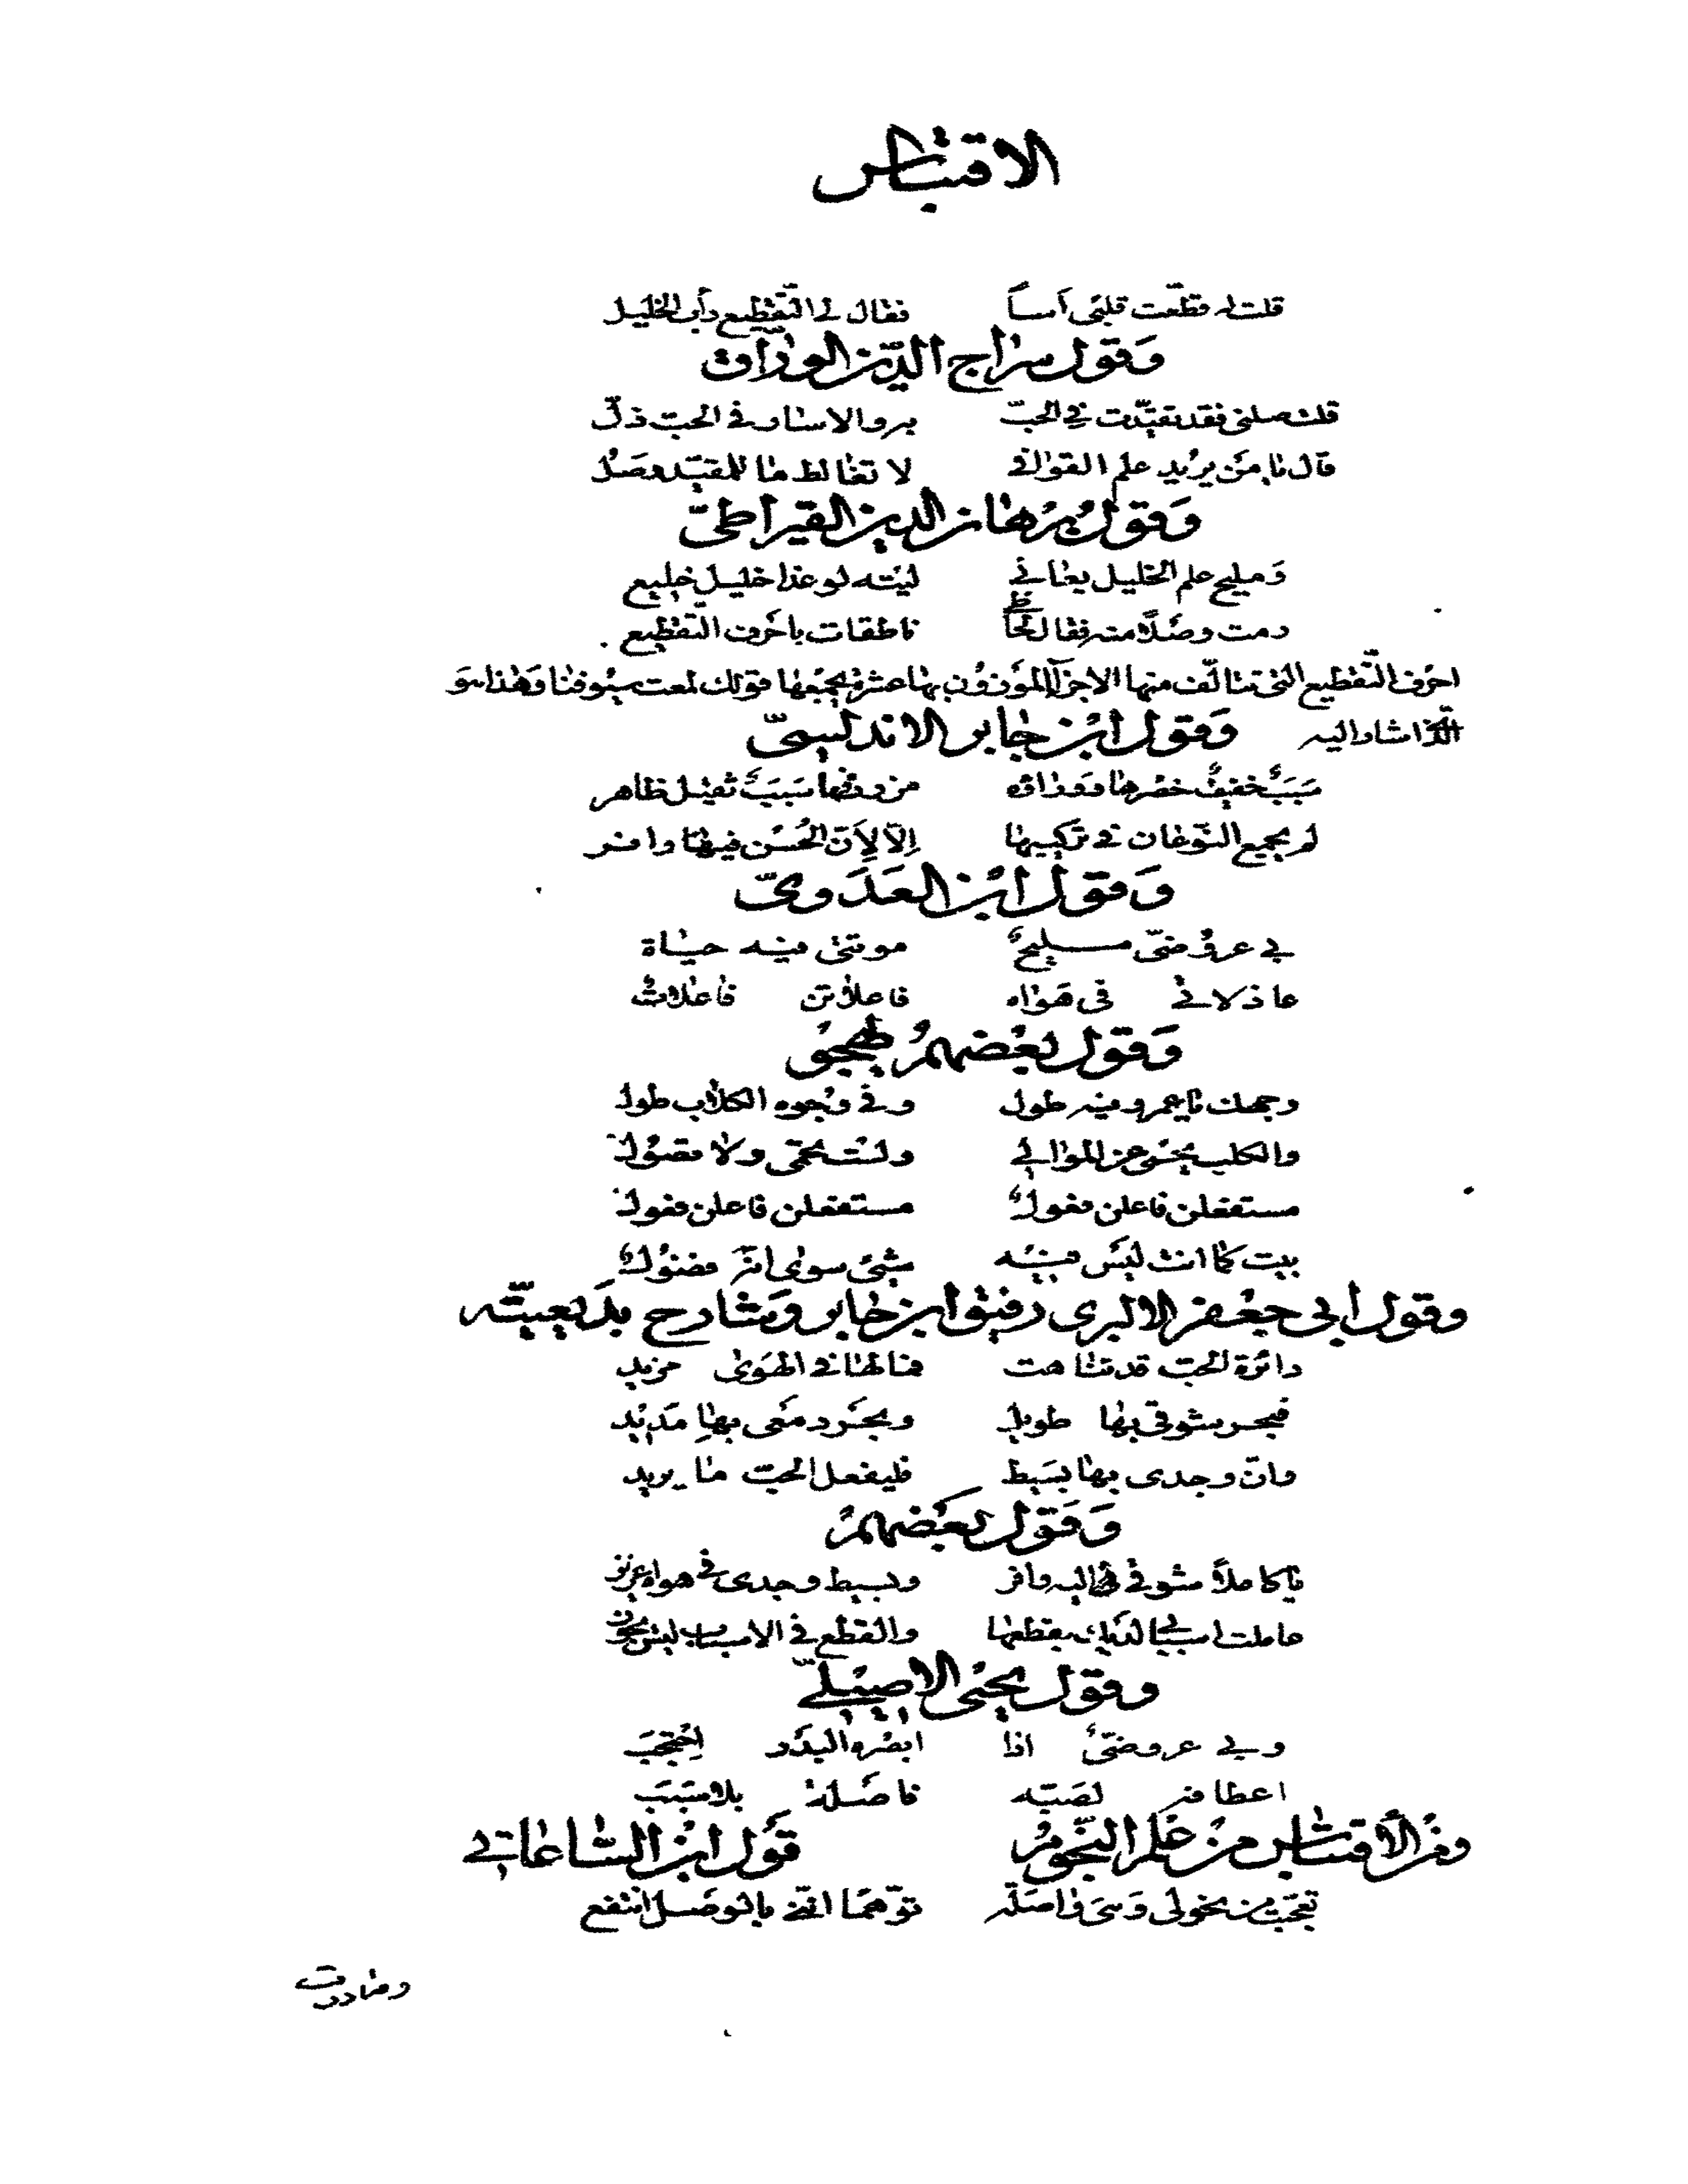 الاقتباس
قلت له قطّعت قلبي أساً فقال لي التّقطيع دأب الخليل
وَقول سراج الدّين الورّاق
قلت صلني فقد تقيّدت في الحبّ به والاسار في الحب ذلّ
قال يا من يريد علم القوافي لا تغالط ما للمقيّد وصْل
وَقولُ برهان الدين القيراطيّ
وَمليح علم الخليل يعاني ليته لو غدا خليل خليع
رمت وصْلاً منه فقال لحاظي ناطقات باحْرف التّقطيع
احرف التّقطيع التي تتألّف منها الاجزآ الموْزوْن بها عشرة يجمعها قولك لمعت سيوفنا وَهذا هوَ
الّذي اشار اليه وَقول ابن جابر الاندلسيّ
سَبَبٌ خفيفٌ خصرها وَوراؤه من ردفها سَبَبٌ ثقيل ظاهر
لم يجمع النّوعان في تركيبها اِلّا لِاَنّ الحُسْن فيها وافر
وَقول ابن العَدَويّ
بي عروْضيّ مليحٌ موتتي فيه حياة
عاذلاني في هَواه فاعلاتن فاعلات
وَقول بعْضهمُ يهجو
وجهك يا عمرو فيه طول وفي وُجوه الكلاب طول
والكلب يحمي عن الموالي ولسْت تحمي ولا تصُول
مستفعلن فاعلن فعولُ مستفعلن فاعلن فعول
بيت كما انت ليْس فيه شيْ سوى انّه فضُولُ
وقول ابي جعْفر الالبري رفيق ابن جابر وَشارح بَديعيّته
دائرة الحبّ قد تناهت فما لها في الهَوى مزيد
فبحر شوقي بها طويل وبحْر دمعي بها مَديْد
وانّ وجدي بها بسَيط فليفعل الحبّ ما يريد
وَقول بعْضهمُ
يا كاملاً شوقي اليه وافر وبسيط وجدي في هواه عزيز
عاملت اسبابي لديك بقطعها والقطع في الاسباب ليْس يجوز
وقول يحيى الاصيْليّ
وبي عروضيٌّ اذا ابصْره البدْر اِحْتجَبَ
اعطافه لصَبّه فاصْلة بلا سَبَب
ومن الأقتباس من علم النّجوْم قوْل ابن السّاعاتي
تعجّبت من نحولي وَهي واصلة توّهّما انّني بالوصْل انتفع
وما درت